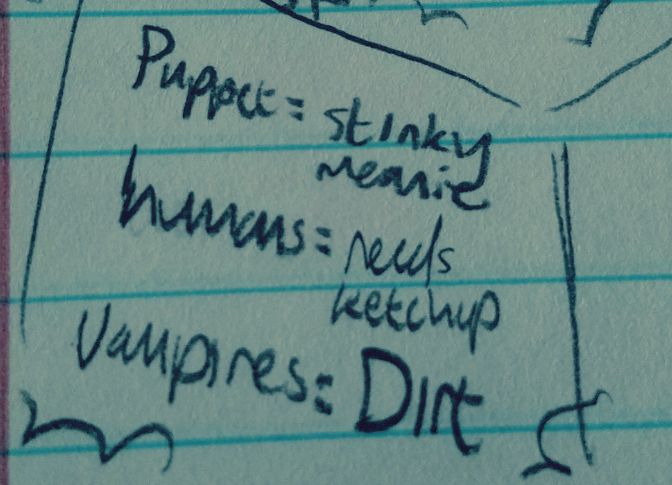 Puppet = stinky
meanie
humans = needs
ketchup
Vampires = Dirt